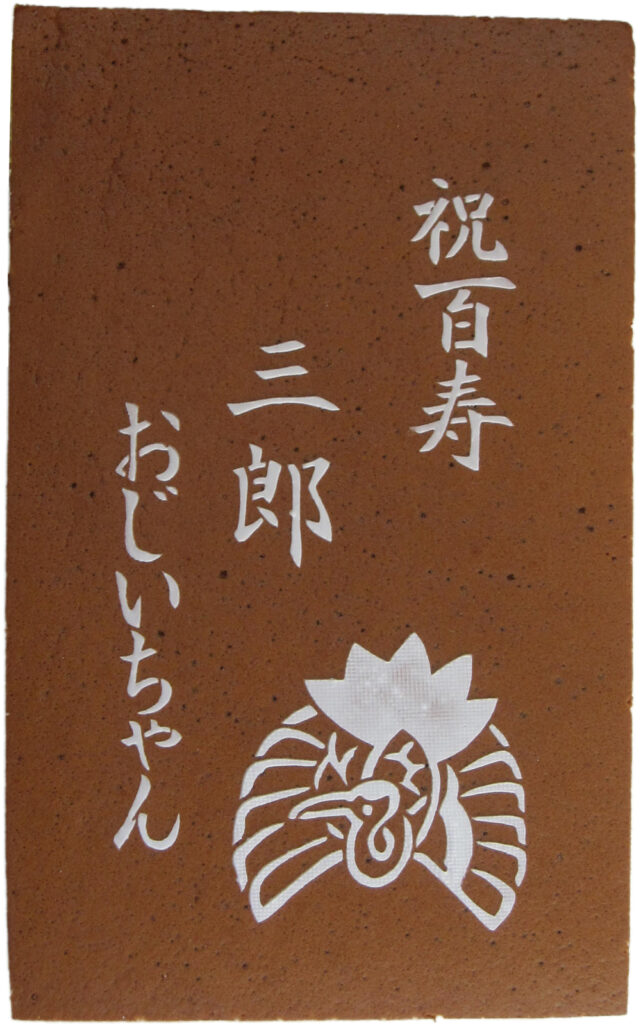 祝百寿
三郎
おじいちゃん